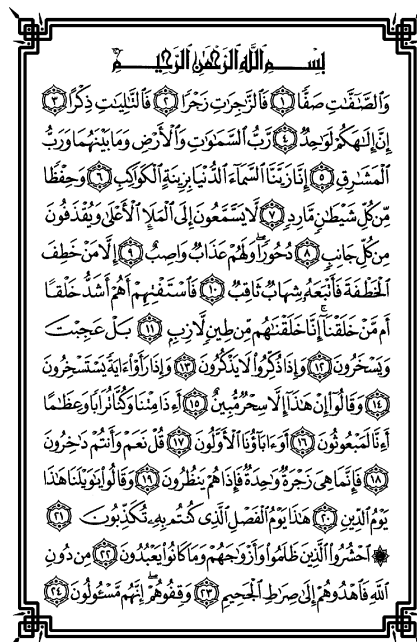 بِسْمِ ٱللَّهِ ٱلرَّحْمَٰنِ ٱلرَّحِيمِ
وَٱلصَّـٰٓفَّـٰتِ صَفًّا ١ فَٱلزَّٰجِرَٰتِ زَجْرًا ٢ فَٱلتَّـٰلِيَـٰتِ ذِكْرًا ٣
إِنَّ إِلَـٰهَكُمْ لَوَٰحِدٌ ٤ رَّبُّ ٱلسَّمَـٰوَٰتِ وَٱلْأَرْضِ وَمَا بَيْنَهُمَا وَرَبُّ
ٱلْمَشَـٰرِقِ ٥ إِنَّا زَيَّنَّا ٱلسَّمَآءَ ٱلدُّنْيَا بِزِينَةٍ ٱلْكَوَاكِبِ ٦ وَحِفْظًا
مِّن كُلِّ شَيْطَـٰنٍ مَّارِدٍ ٧ لَّا يَسَّمَّعُونَ إِلَى ٱلْمَلَإِ ٱلْأَعْلَىٰ وَيُقْذَفُونَ
مِن كُلِّ جَانِبٍ ٨ دُحُورًا ۖ وَلَهُمْ عَذَابٌ وَاصِبٌ ٩ إِلَّا مَنْ خَطِفَ
ٱلْخَطْفَةَ فَأَتْبَعَهُۥ شِهَابٌ ثَاقِبٌ ١٠ فَٱسْتَفْتِهِمْ أَهُمْ أَشَدُّ خَلْقًا
أَم مَّنْ خَلَقْنَآ ۚ إِنَّا خَلَقْنَـٰهُم مِّن طِينٍ لَّازِبٍ ١١ بَلْ عَجِبْتَ
وَيَسْخَرُونَ ١٢ وَإِذَا ذُكِّرُوا۟ لَا يَذْكُرُونَ ١٣ وَإِذَا رَأَوْا۟ ءَايَةً يَسْتَسْخِرُونَ
١٤ وَقَالُوٓا۟ إِنْ هَـٰذَآ إِلَّا سِحْرٌ مُّبِينٌ ١٥ أَءِذَا مِتْنَا وَكُنَّا تُرَابًا وَعِظَـٰمًا
أَءِنَّا لَمَبْعُوثُونَ ١٦ أَوَءَابَآؤُنَا ٱلْأَوَّلُونَ ١٧ قُلْ نَعَمْ وَأَنتُمْ دَٰخِرُونَ
١٨ فَإِنَّمَا هِىَ زَجْرَةٌ وَٰحِدَةٌ فَإِذَا هُمْ يَنظُرُونَ ١٩ وَقَالُوا۟ يَـٰوَيْلَنَا هَـٰذَا
يَوْمُ ٱلدِّينِ ٢٠ هَـٰذَا يَوْمُ ٱلْفَصْلِ ٱلَّذِى كُنتُم بِهِۦ تُكَذِّبُونَ ٢١
۞ ٱحْشُرُوا۟ ٱلَّذِينَ ظَلَمُوا۟ وَأَزْوَٰجَهُمْ وَمَا كَانُوا۟ يَعْبُدُونَ ٢٢ مِن دُونِ
ٱللَّهِ فَٱهْدُوهُمْ إِلَىٰ صِرَٰطِ ٱلْجَحِيمِ ٢٣ وَقِفُوهُمْ ۖ إِنَّهُم مَّسْـُٔولُونَ ٢٤